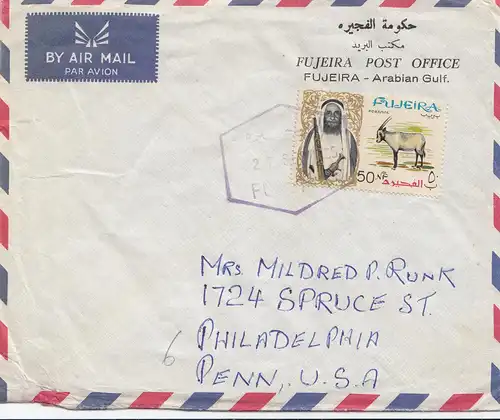 BY AIR MAIL
PAR AVION
حكومة الفجيره
مكتب البريد
FUJEIRA POST OFFICE
FUJEIRA - Arabian Gulf.
FUJEIRA
POSTAGE
بريد
50 NP
الفجيره
٥٠
Mrs MILDRED P. RUNK
1724 SPRUCE ST.
PHILADELPHIA
PENN,. U.S.A
6